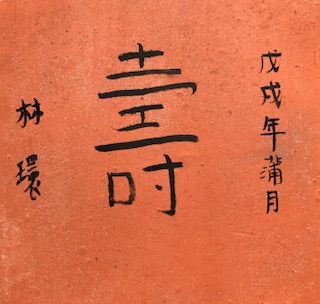 戊戌年蒲月
壽
林環